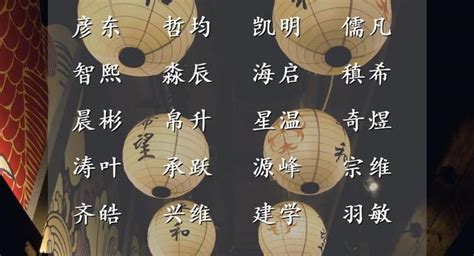 彦东 哲均 凯明 儒凡
智熙 淼辰 海启 稹希
晨彬 帛升 星温 奇煜
涛叶 承跃 源峰 宗维
齐皓 兴维 建学 羽敏
希望
和